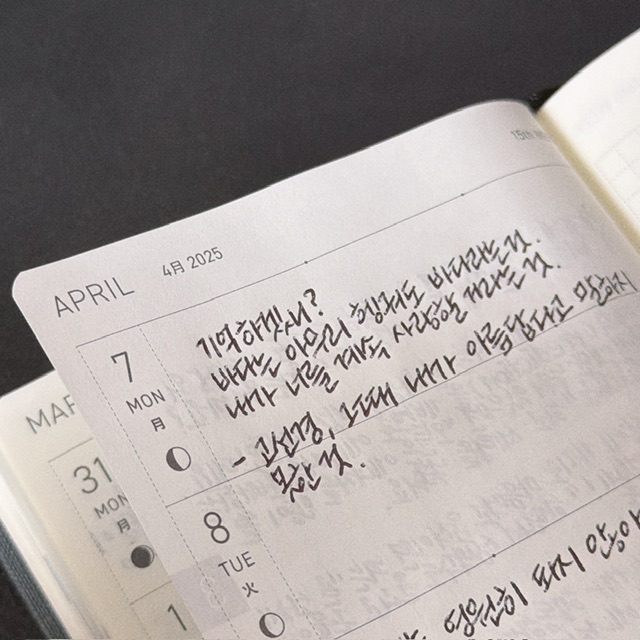 APRIL 4月 2025
7
MON
月
바다는 아무리 헹궈도 바다라는 것.
내가 너를 계속 사랑할 거라는 것.
- 고선경, 그때 내가 아름답다고 말하지
못한 것.
8
TUE
火
되지 않아
MAR
31
MON
月
1